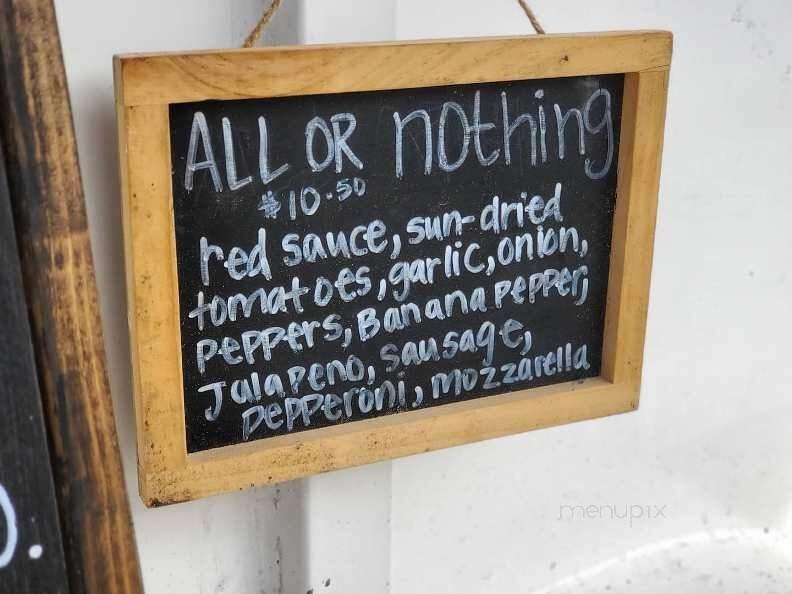 ALL OR nothing
$10.50
red sauce, sun-dried
tomatoes, garlic, onion,
peppers, Banana pepper,
Jalapeno, sausage,
pepperoni, mozzarella
menupix